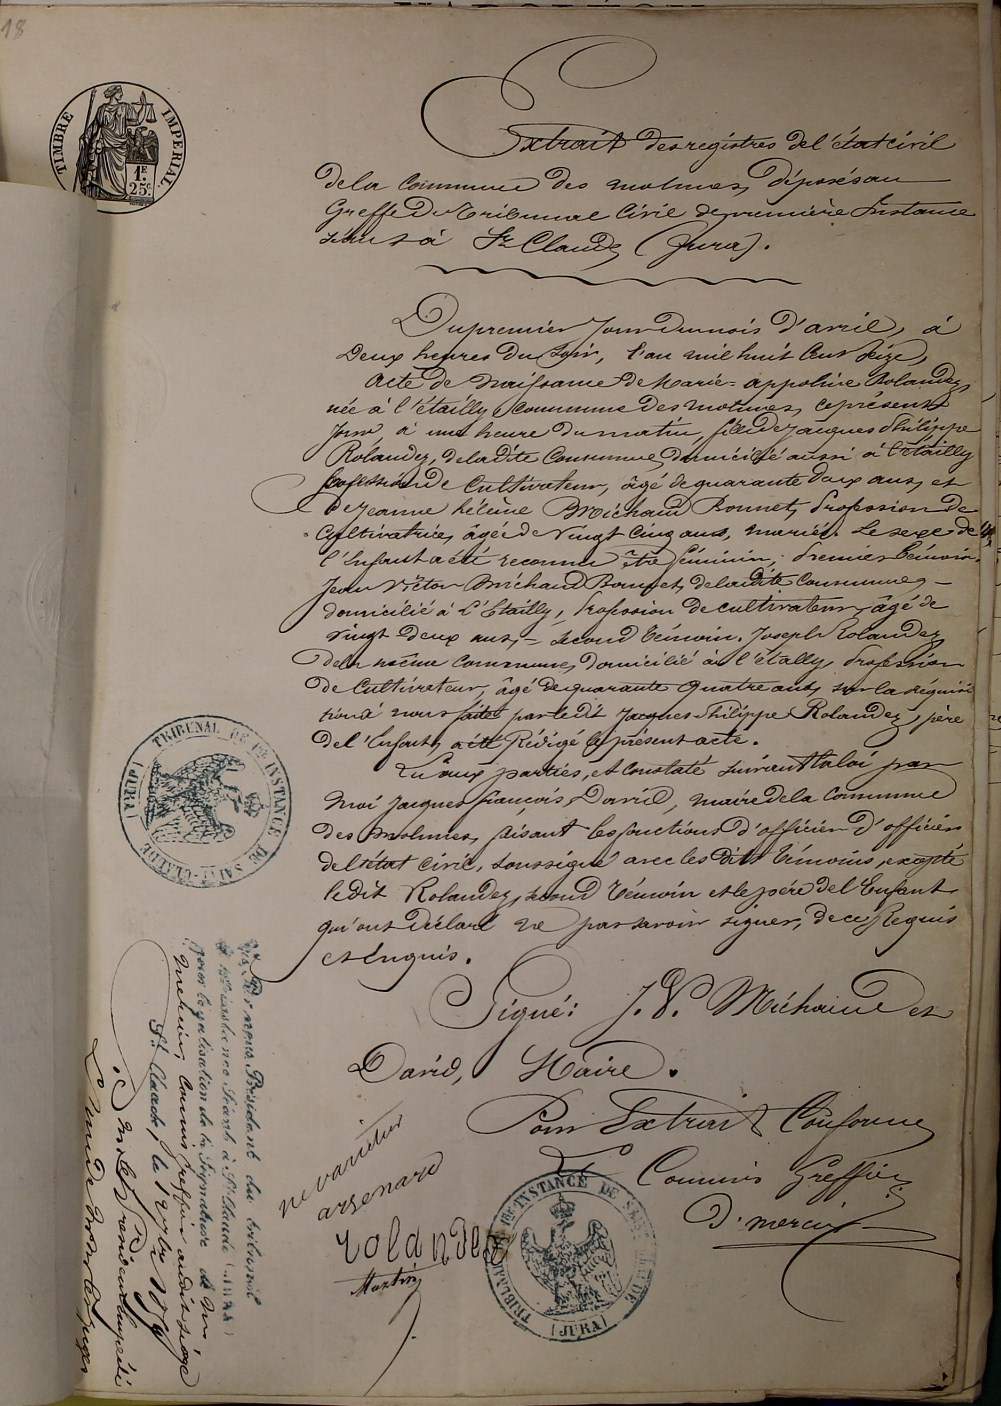 18
TIMBRE IMPERIAL
1F.
25c.
Extrait des registres de l'état civil
de la Commune des molunes, déposés au
Greffe du tribunal Civil de première Instance
séant à St Claude (Jura).
Du premier Jour du mois d'avril, à
Deux heures du Soir, l'an mil huit Cent Seize,
acte de Naissance de Marie=appoline Rolandez,
née à l'étailly Commune des molunes, ce présent
Jour, à une heure du matin, fille de Jacques Philippe
Rolandez, de la dite Commune, domicilié aussi à l'étailly
profession de Cultivateur, âgé de quarante deux ans, et
de Jeanne hélène Michaud Bonnet, Profession de
Cultivatrice, âgée de Vingt Cinq ans, mariés. Le sexe de
l'Enfant a été reconnu être féminin; Premier témoin,
Jean Victor Michaud Bonnet, de la dite Commune,
domicilié à L'Etailly, Profession de cultivateur, âgé de
Vingt deux ans, = second témoin, Joseph Rolandez
de la même Commune, domicilié à l'étally, Profession
de Cultivateur, âgé de quarante quatre ans, sur la réquisi
tion à nous faite par le dit Jacques Philippe Rolandez, père
de l'Enfant, a été Rédigé le présent acte.
Lu aux parties, et Constaté suivant la loi par
Moi Jacques françois David, maire de la Commune
des Molunes, faisant les fonctions d'officier d'officier
de l'état Civil, soussigné avec les dits témoins, excepté
le dit Rolandez, second témoin et le père de l'Enfant
qui ont déclaré ne pas savoir signer, de ce Requis
et Enquis.
Signé: J. V. Michaud et
David, Maire.
Pour Extrait Conforme
Le Commis Greffier
D. mercier
ne varietur
arsenard
rolandez
Martin
TRIBUNAL DE 1ere INSTANCE DE SAINT-CLAUDE (JURA)
TRIBUNAL DE 1ere INSTANCE DE SAINT-CLAUDE (JURA)
Vu par nous Président du tribunal
de 1ère instance Séant à St Claude (JURA)
pour légalisation de la Signature de M.
Mercier, Commis greffier audit siège
St Claude, le
Le Président empêché
L'un de Mrs les juges